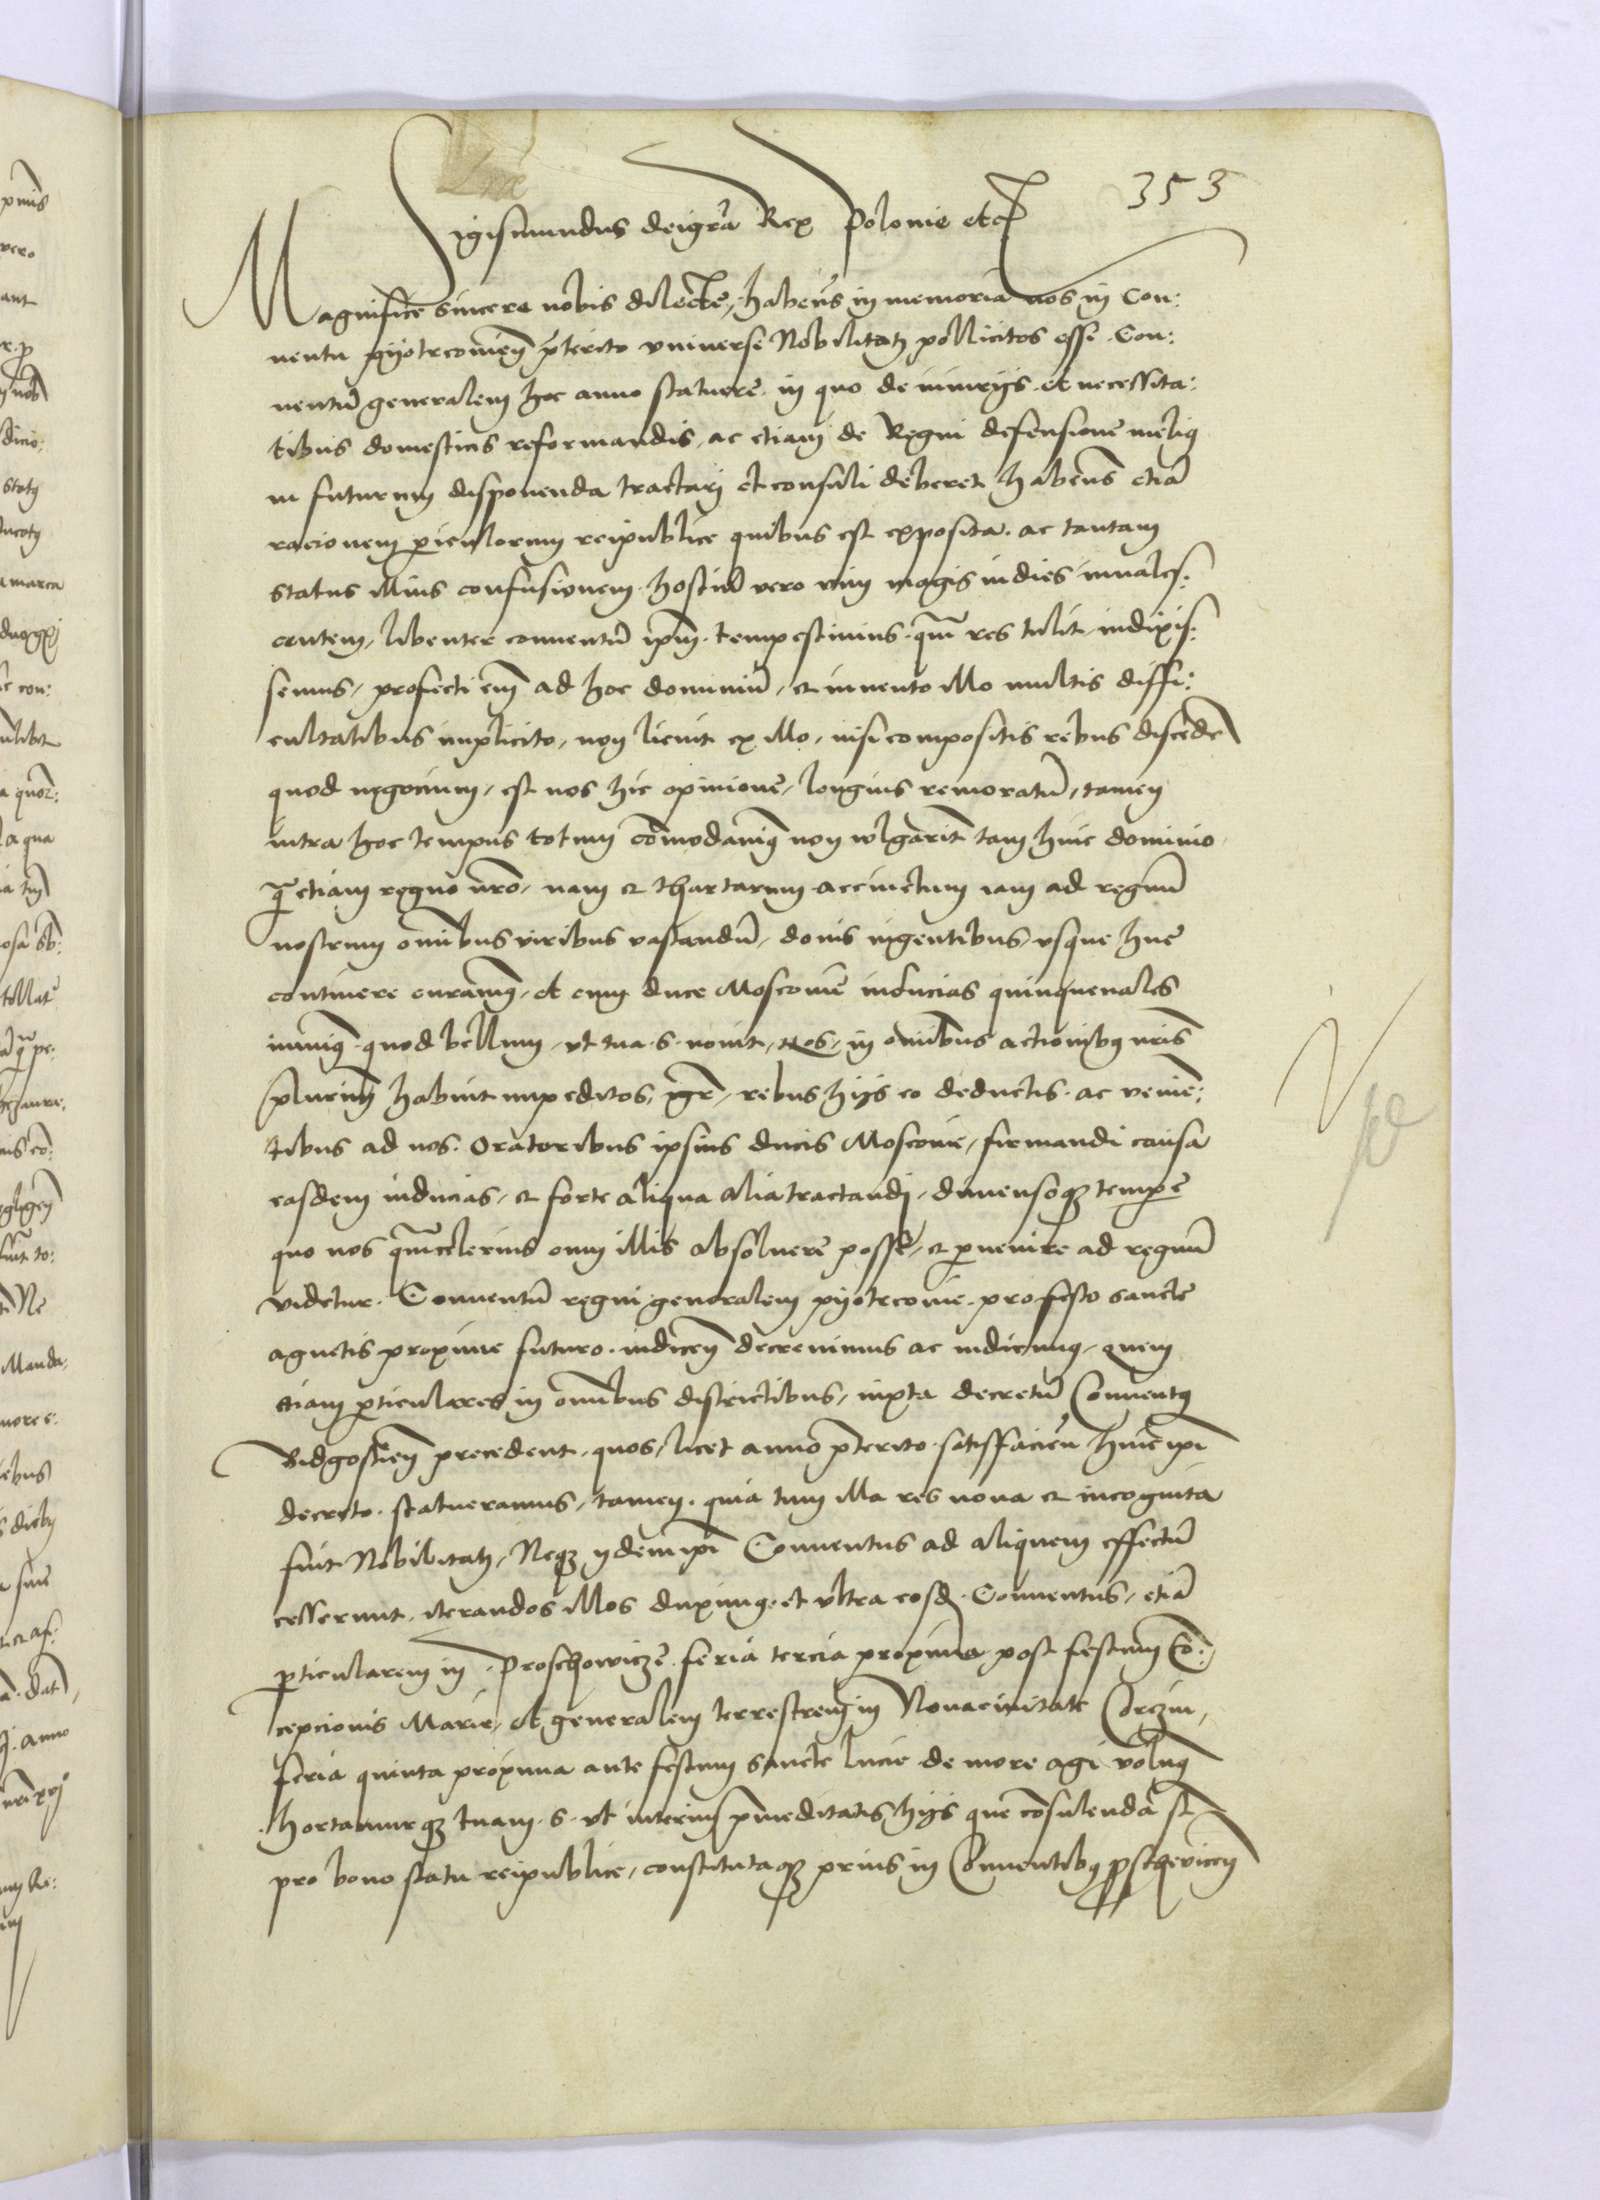 353
Sigismundus dei gra Rex Polonie etc
Magnifice sincere nobis dilecte, habem̃s in memoria nos in Con:
ventu pyotrcovieñ preterito universe Nobilitati pollicitos esse Con:
ventũ generalem hoc anno statuere in quo de iniurijs et necessita:
tibus domesticis reformandis, ac etiam de Regni defensione melius
in futurum disponenda tractari et consuli deberet habem̃s etiã
racionem periculorum reipublice quibus est exposita ac tantam
status illius confusionem, hostiũ vero vim magis indies invales:
centem, libenter conventũ ipm̃ tempestivius qm̃ res tulit indixis:
semus, profecti em̃ ad hoc dominiũ, et invento illo multis diffi:
cultatibus implicito, non licuit ex illo, nisi compositis rebus discede
quod negocium, est nos hic opinione, longius remoratũ, tamen
intra hoc tempus totum com̃odavimꝯ non vulgarit tam huic dominio
q̃ etiam regno nr̃o, nam et thartarum accinctum iam ad regnũ
nostrum om̃ibus viribus vastandũ, donis ingentibus usque huc
continere curavimꝯ, et cum duce Moscovie inducias quinquenales
inivimꝯ quod bellum, ut tua s. novit, nos, in om̃ibus actionibꝯ nr̃is
plurimũ habuit impeditos, igr̃, rebus hijs eo deductis ac venien:
tibus ad nos Oratoribus ipsius ducis Moscovie, firmandi causa
easdem inducias, et forte aliqua alia tractandi, dimensoqꝫ tempore
quo nos qm̃celerius cum illis absolvere posse, et pervenire ad regnũ
videtur. Conventũ regni generalem pyotrcovie pro festo sancte
agnetis proxime futuro indiceñ decrevimus ac indicimꝯ, quem
etiam particulares in om̃ibus districtibus, iuxta decretũ Conventꝯ
Bidgostieñ precedent, quos, licet anno preterito satisfacieñ huic ipi
decreto statueramus, tamen quia tum illa res nova et incognita
fuit Nobilitati, Neqꝫ ydem ipi Conventus ad aliquem effectũ
cesserunt, iterandos illos duximꝯ et ultra eosd Conventus, etiã
particularem in Proschowicze feria tercia proxima post festum Co:
cepcionis Marie, et generalem terrestrem in Nova civitate Corczin,
feria quinta proxima ante festum sancte lucie de more agi volumꝯ
hortamurqꝫ tuam s. ut interim premeditatis hijs que consulenda st
pro bono statu reipublice, constitutaqꝫ prius in Conventibꝯ proschoviceñ